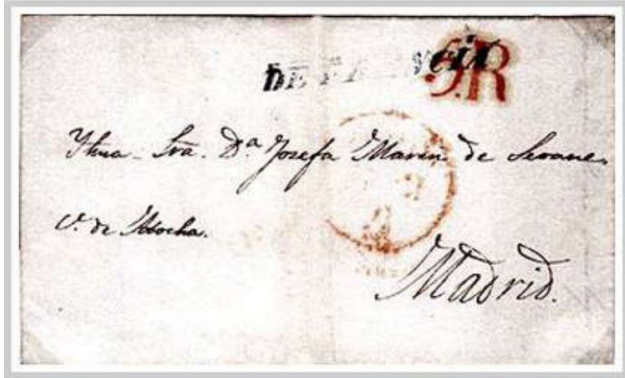 DE FRANCIA 5R
Yltma. Sra. Dª Josefa Marin de Seoane.
C. de Atocha.
Madrid.